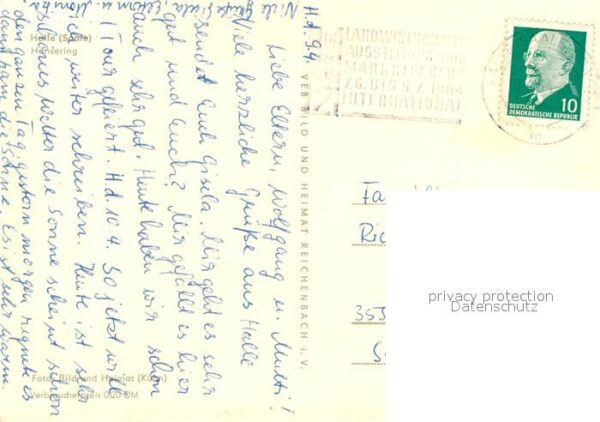 Halle (Saale)
Hansering
H. d. 9.4.
Liebe Eltern, Wolfgang u. Mutti!
Viele herzliche Grüße aus Halle
sendet Euch Gisela. Mir geht es sehr
gut und Euch? Mir gefällt es hier
auch sehr gut. Heute haben wir schon
1 Tour gefeiert. H. d. 10.4. So jetzt will
ich weiter schreiben. Heute ist sehr
schönes Wetter die Sonne scheint schon
den ganzen Tag, gestern morgen regnete es
dann kam die Sonne. Es ist sehr warm.
Viele Grüße Gisela,
u. Monika
Foto: Bild und Heimat (Kühn)
Verbraucherpreis 0,20 DM
VEB BILD UND HEIMAT REICHENBACH i. V.
LANDWIRTSCHAFTS
AUSSTELLUNG DDR
MARKKLEEBERG
7.6. BIS 5.7. 1964
INTERNATIONAL
10
DEUTSCHE
DEMOKRATISCHE REPUBLIK
Fa
Ri
355
S
privacy protection
Datenschutz